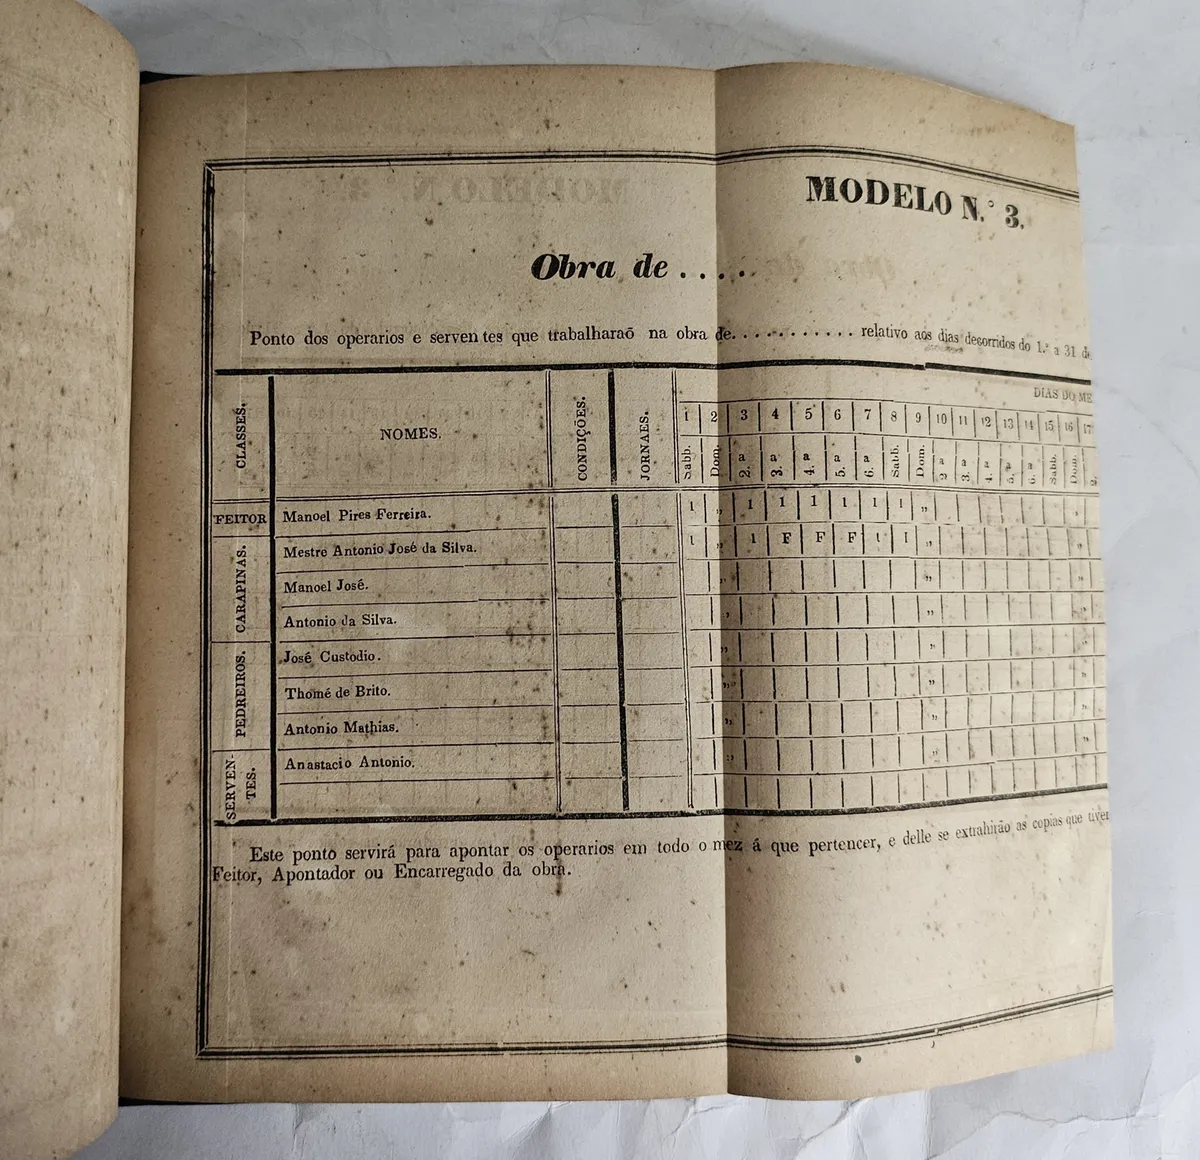 MODELO N.º 3.
Obra de . . . . .
Ponto dos operarios e serventes que trabalharaõ na obra de. . . . . . . . . . . relativo aos dias decorridos do 1.º a 31 de
CLASSES. NOMES. CONDIÇÕES. JORNAES. DIAS DO ME
1 2 3 4 5 6 7 8 9 10 11 12 13 14 15 16 17
Sabb. Dom. 2.ª 3.ª 4.ª 5.ª 6.ª Sabb. Dom. 2.ª 3.ª 4.ª 5.ª 6.ª Sabb. Dom. 2.
FEITOR Manoel Pires Ferreira. 1 „ 1 1 1 1 1 1 „ „
CARAPINAS. Mestre Antonio José da Silva. 1 „ 1 F F F 1 1 „ „
Manoel José. „ „ „
Antonio da Silva. „ „ „
PEDREIROS. José Custodio. „ „ „
Thomé de Brito. „ „ „
Antonio Mathias. „ „ „
SERVENTES. Anastacio Antonio. „ „
Este ponto servirá para apontar os operarios em todo o mez á que pertencer, e delle se extrahirão as copias que
Feitor, Apontador ou Encarregado da obra.